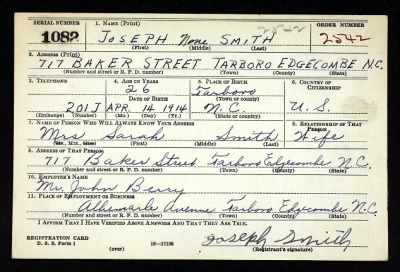 SERIAL NUMBER 1. NAME (Print) ORDER NUMBER
1082 JOSEPH None SMITH 2542 2542
(First) (Middle) (Last)
2. ADDRESS (Print)
717 BAKER STREET TARBORO EDGECOMBE N.C.
(Number and street or R. F. D. number) (Town) (County) (State)
3. TELEPHONE 4. AGE IN YEARS 5. PLACE OF BIRTH 6. COUNTRY OF CITIZENSHIP
26 Tarboro
DATE OF BIRTH (Town or county)
201J APR. 14 1914 N.C. U.S.
(Exchange) (Number) (Mo.) (Day) (Yr.) (State or country)
7. NAME OF PERSON WHO WILL ALWAYS KNOW YOUR ADDRESS 8. RELATIONSHIP OF THAT PERSON
Mrs Sarah Smith Wife
(Mr., Mrs., Miss) (First) (Middle) (Last)
9. ADDRESS OF THAT PERSON
717 Baker Street Tarboro Edgecombe N.C.
(Number and street or R. F. D. number) (Town) (County) (State)
10. EMPLOYER'S NAME
Mr. John Berry
11. PLACE OF EMPLOYMENT OR BUSINESS
Albemarle Avenue Tarboro Edgecombe N.C.
(Number and street or R. F. D. number) (Town) (County) (State)
I AFFIRM THAT I HAVE VERIFIED ABOVE ANSWERS AND THAT THEY ARE TRUE.
Joseph Smith
REGISTRATION CARD
D. S. S. Form 1 (over) 16-17105 (Registrant's signature)